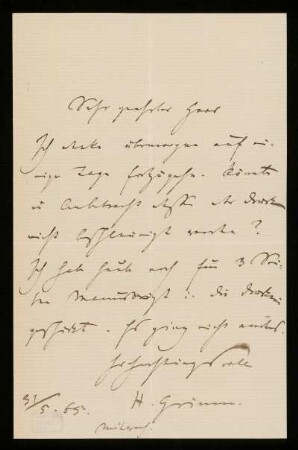 Sehr geehrter Herr
Ich denke übermorgen auf ei-
nige Tage fortzugehn. Könnte
in Anbetracht dessen der Druck
nicht beschleunigt werden?
Ich habe heute noch für 3 Sei-
ten Manuscript in die Druckerei
geschickt. Es ging nicht anders.
Hochachtungsvoll
H. Grimm.
31/5. 65.
Mittwoch.